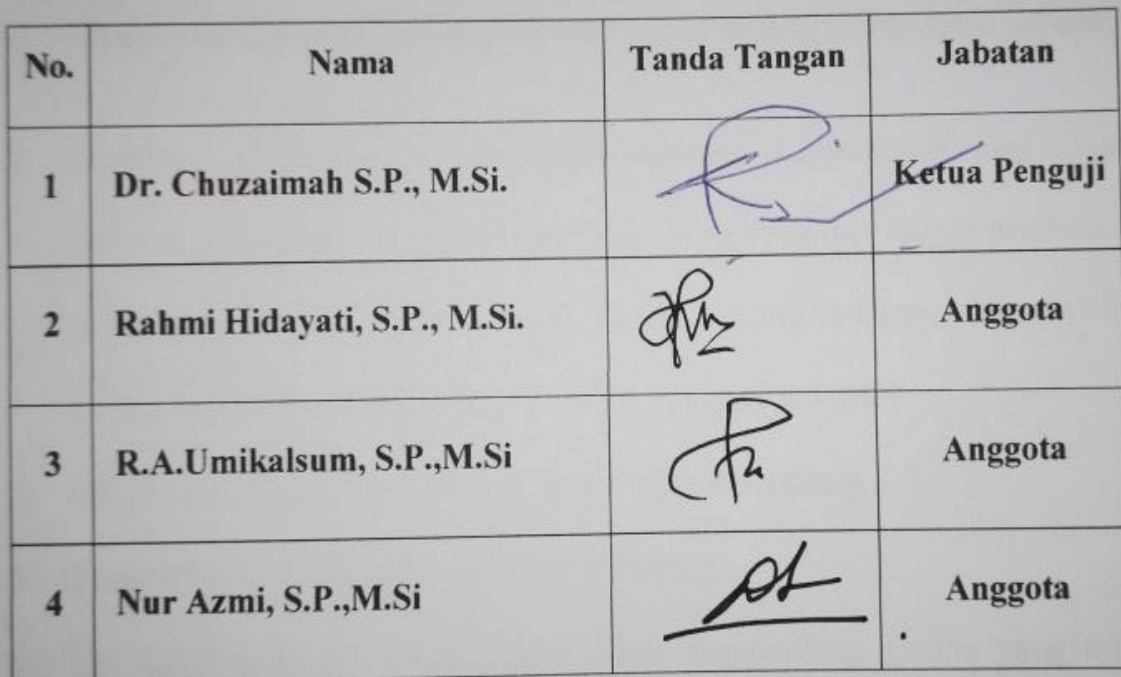 No. Nama Tanda Tangan Jabatan
1 Dr. Chuzaimah S.P., M.Si. Ketua Penguji
2 Rahmi Hidayati, S.P., M.Si. Anggota
3 R.A.Umikalsum, S.P.,M.Si Anggota
4 Nur Azmi, S.P.,M.Si Anggota